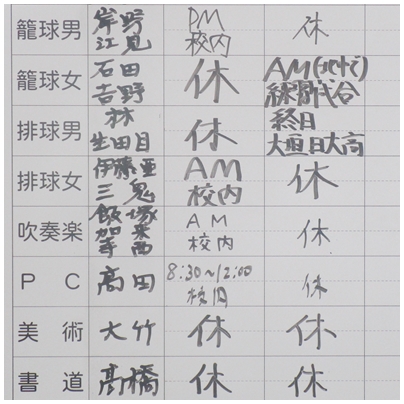 籠球男 岸野 PM 休
江見 校内
籠球女 石田 休 AM
吉野 練習試合
排球男 林 休 終日
生田目 大垣日大高
排球女 伊藤亜 AM 休
三鬼 校内
吹奏楽 飯塚 AM 休
加来 校内
寺西
PC 高田 8:30~12:00 休
校内
美術 大竹 休 休
書道 髙橋 休 休